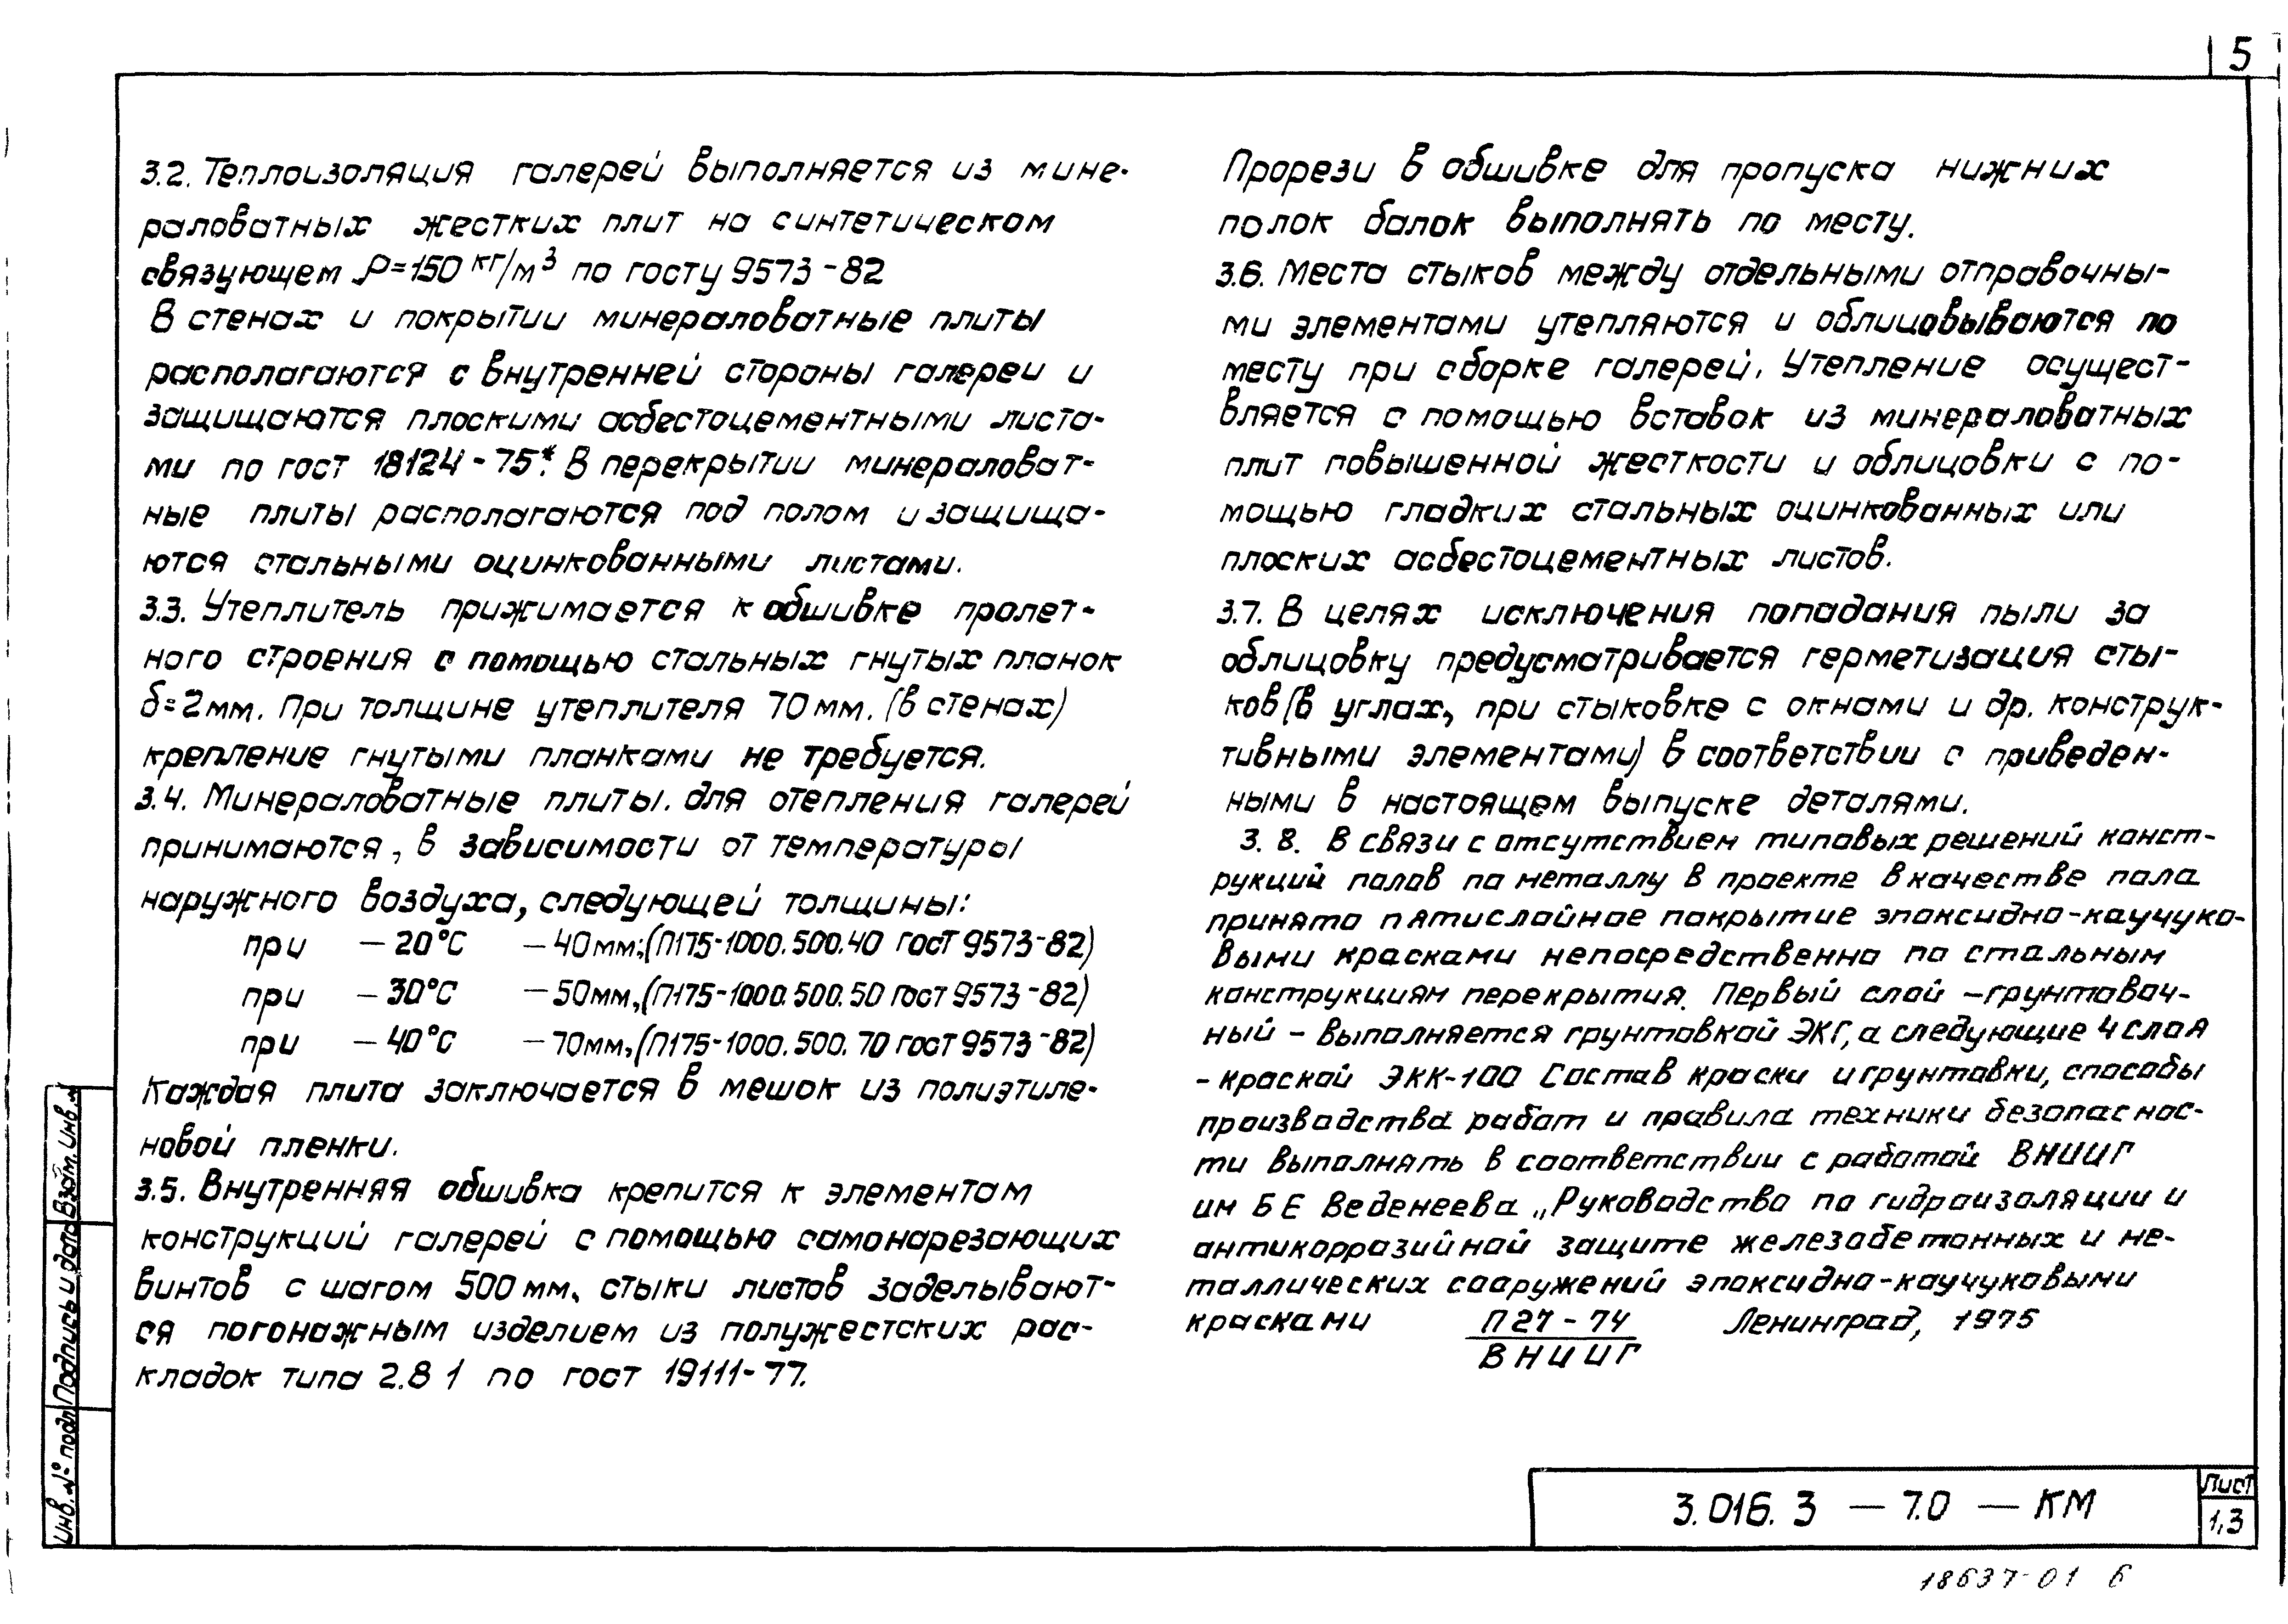 5
3.2. Теплоизоляция галерей выполняется из мине-
раловатных жестких плит на синтетическом
связующем ρ=150 кг/м³ по госту 9573-82
В стенах и покрытии минераловатные плиты
располагаются с внутренней стороны галереи и
защищаются плоскими асбестоцементными листа-
ми по гост 18124-75*. В перекрытии минераловат-
ные плиты располагаются под полом и защища-
ются стальными оцинкованными листами.
3.3. Утеплитель прижимается к обшивке пролет-
ного строения с помощью стальных гнутых планок
δ=2мм. При толщине утеплителя 70мм. (в стенах)
крепление гнутыми планками не требуется.
3.4. Минераловатные плиты. для отепления галерей
принимаются, в зависимости от температуры
наружного воздуха, следующей толщины:
при —20°С —40мм;(П175-1000.500.40 гост 9573-82)
при —30°С —50мм,(П175-1000.500.50 гост 9573-82)
при —40°С —70мм,(П175-1000.500.70 гост 9573-82)
Каждая плита заключается в мешок из полиэтиле-
новой пленки.
3.5. Внутренняя обшивка крепится к элементам
конструкций галерей с помощью самонарезающих
винтов с шагом 500мм, стыки листов заделывают-
ся погонажным изделием из полужестских рас-
кладок типа 2.8 1 по гост 19111-77.
Прорези в обшивке для пропуска нижних
полок балок выполнять по месту.
3.6. Места стыков между отдельными отправочны-
ми элементами утепляются и облицовываются по
месту при сборке галерей. Утепление осущест-
вляется с помощью вставок из минераловатных
плит повышенной жесткости и облицовки с по-
мощью гладких стальных оцинкованных или
плоских асбестоцементных листов.
3.7. В целях исключения попадания пыли за
облицовку предусматривается герметизация сты-
ков (в углах, при стыковке с окнами и др. конструк-
тивными элементами) в соответствии с приведен-
ными в настоящем выпуске деталями.
3.8. В связи с отсутствием типовых решений конст-
рукций полов по металлу в проекте в качестве пола
принято пятислойное покрытие эпоксидно-каучуко-
выми красками непосредственно по стальным
конструкциям перекрытия. Первый слой -грунтовоч-
ный - выполняется грунтовкой ЭКГ, а следующие 4 слоя
- краской ЭКК-100 Состав краски и грунтовки, способы
производства работ и правила техники безопаснос-
ти выполнять в соответствии с работой ВНИИГ
им Б Е Веденеева „Руководство по гидроизоляции и
антикоррозийной защите железобетонных и ме-
таллических сооружений эпоксидно-каучуковыми
красками П27-74 Ленинград, 1975
ВНИИГ
Инв. № подл Подпись и дата Взам. инв. №
3.016.3 — 7.0 — КМ
Лист
1,3
18637-01 6